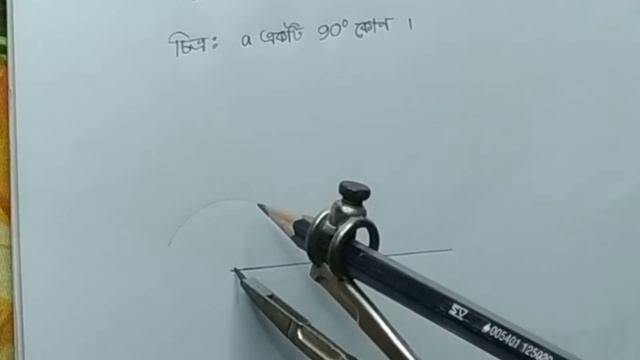 চিত্র: a একটি 90° কোন ।
005401 125020